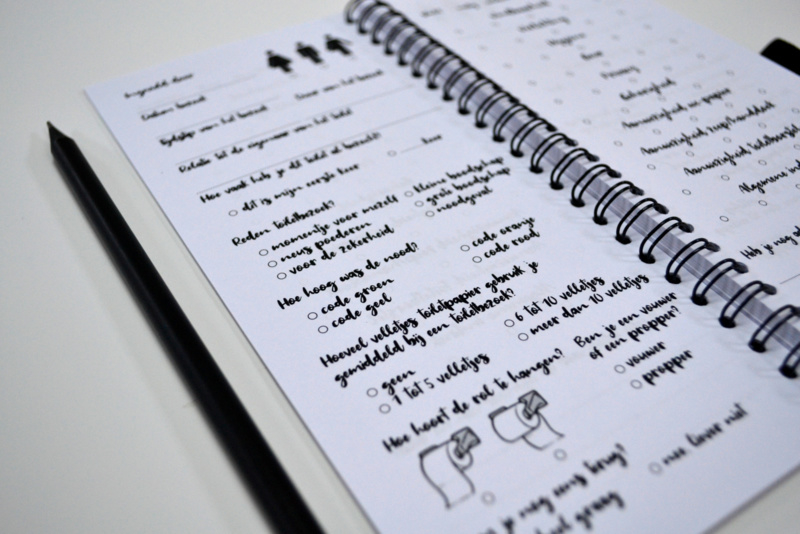 Ingevuld door
Datum bezoek
Duur van het bezoek
Tijdstip van het bezoek
Relatie tot de eigenaar van het toilet
Hoe vaak heb je dit toilet al bezocht?
dit is mijn eerste keer
keer
Reden toiletbezoek?
momentje voor mezelf
kleine boodschap
neus poederen
grote boodschap
voor de zekerheid
noodgeval
Hoe hoog was de nood?
code groen
code oranje
code geel
code rood
Hoeveel velletjes toiletpapier gebruik je
gemiddeld bij een toiletbezoek?
geen
6 tot 10 velletjes
1 tot 5 velletjes
meer dan 10 velletjes
Hoe hoort de rol te hangen?
Ben je een vouwer
of een propper?
vouwer
propper
je nog eens terug?
graag
nee liever niet
Hygiëne
Geur
Privacy
Aanwezigheid wc-papier
Aanwezigheid zeep/handdoek
Aanwezigheid toiletborstel
Algemene
Heb je nog